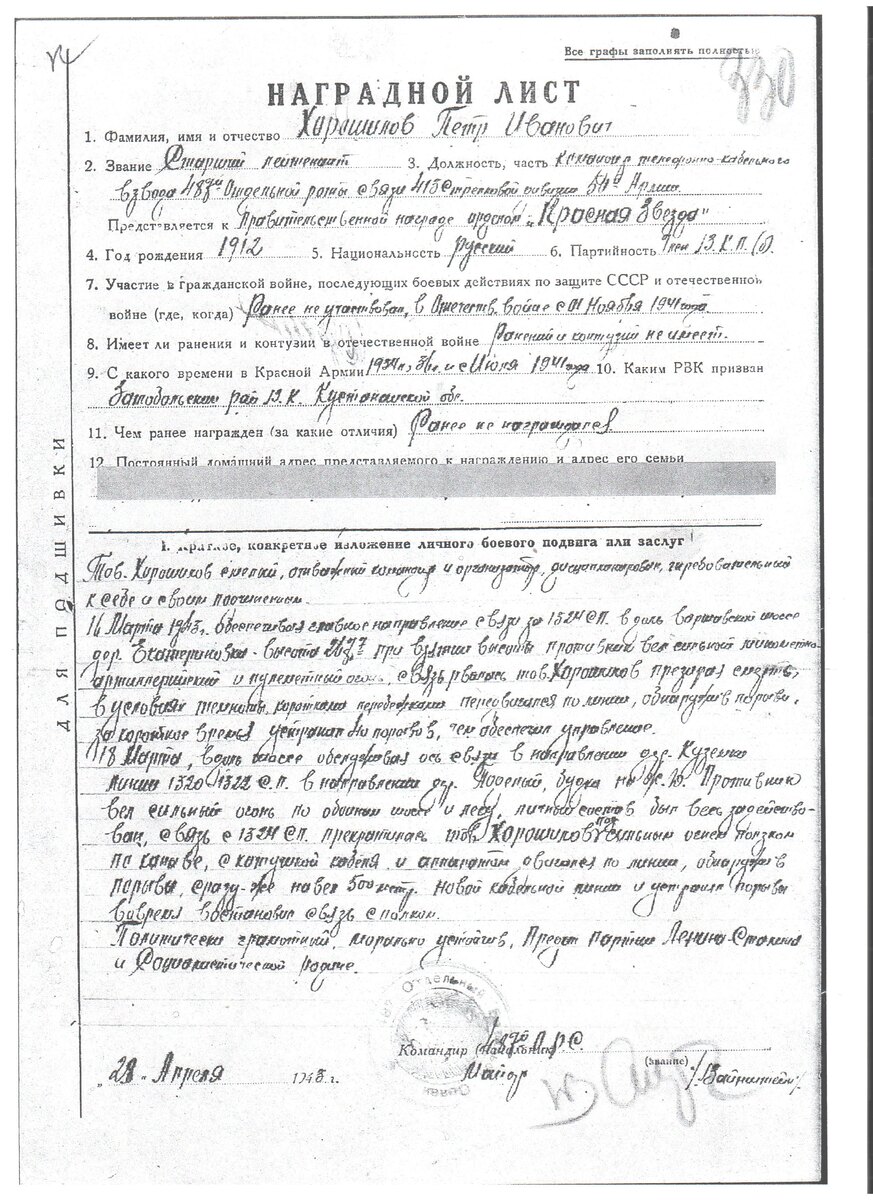 Все графы заполнять полностью
330
НАГРАДНОЙ ЛИСТ
1. Фамилия, имя и отчество Хорошилов Петр Иванович
2. Звание Старший лейтенант 3. Должность, часть командир телефонно-кабельного
взвода 487й Отдельной роты связи 415 Стрелковой дивизии 54й Армии
Представляется к Правительственной награде орденом „Красная Звезда"
4. Год рождения 1912 5. Национальность русский 6. Партийность член В.К.П.(б)
7. Участие в гражданской войне, последующих боевых действиях по защите СССР и отечественной
войне (где, когда) Ранее не участвовал, в Отечеств. войне с 01 Ноября 1941 года
8. Имеет ли ранения и контузии в отечественной войне Ранений и контузий не имеет.
9. С какого времени в Красной Армии и с Июля 1941 года 10. Каким РВК призван
Затобольским рай В.К. Кустанайской обл.
11. Чем ранее награжден (за какие отличия) Ранее не награждался
12. Постоянный домашний адрес представляемого к награждению и адрес его семьи
ДЛЯ ПОДШИВКИ
I. Краткое, конкретное изложение личного боевого подвига или заслуг
Тов. Хорошилов смелый, отважный командир и организатор, дисциплинирован, требовательный
к себе и своим подчиненым.
16 Марта 1943г. обеспечивая главное направление связи за 1324 С.П. вдоль варшавской шоссе
дер. Екатериновка - высота при взятии высоты противник вел сильный минометно-
артиллерийский и пулеметный огонь, связь рвалась тов. Хорошилов презирая смерть,
в условиях темноты, короткими перебежками передвигался по линии, обнаружив порывы,
за короткое время устранил порывов, чем обеспечил управление.
18 Марта, вдоль шоссе обслуживая ось связи в направлении дер. Куземки
линии 1320-1322 С.П. в направлении дер. будка на Ж.Д. Противник
вел сильный огонь по обоим шоссе и лесу, личный состав был весь задейство-
ван, связь с 1324 С.П. прекратилась тов. Хорошилов под сильным огнем ползком
по канаве, с катушкой кабеля и аппаратом двигался по линии, обнаружив
порывы, сразу-же навел 500 метр. новой кабельной линии и устранил порывы
вовремя востановив связь с полком.
Политически грамотный, морально устойчив, Предан партии Ленина-Сталина
и Социалистической родине.
Командир (начальник) 487 О.Р.С.
(звание)
Майор /Вайнштейн/
„28" Апреля 1943 г.